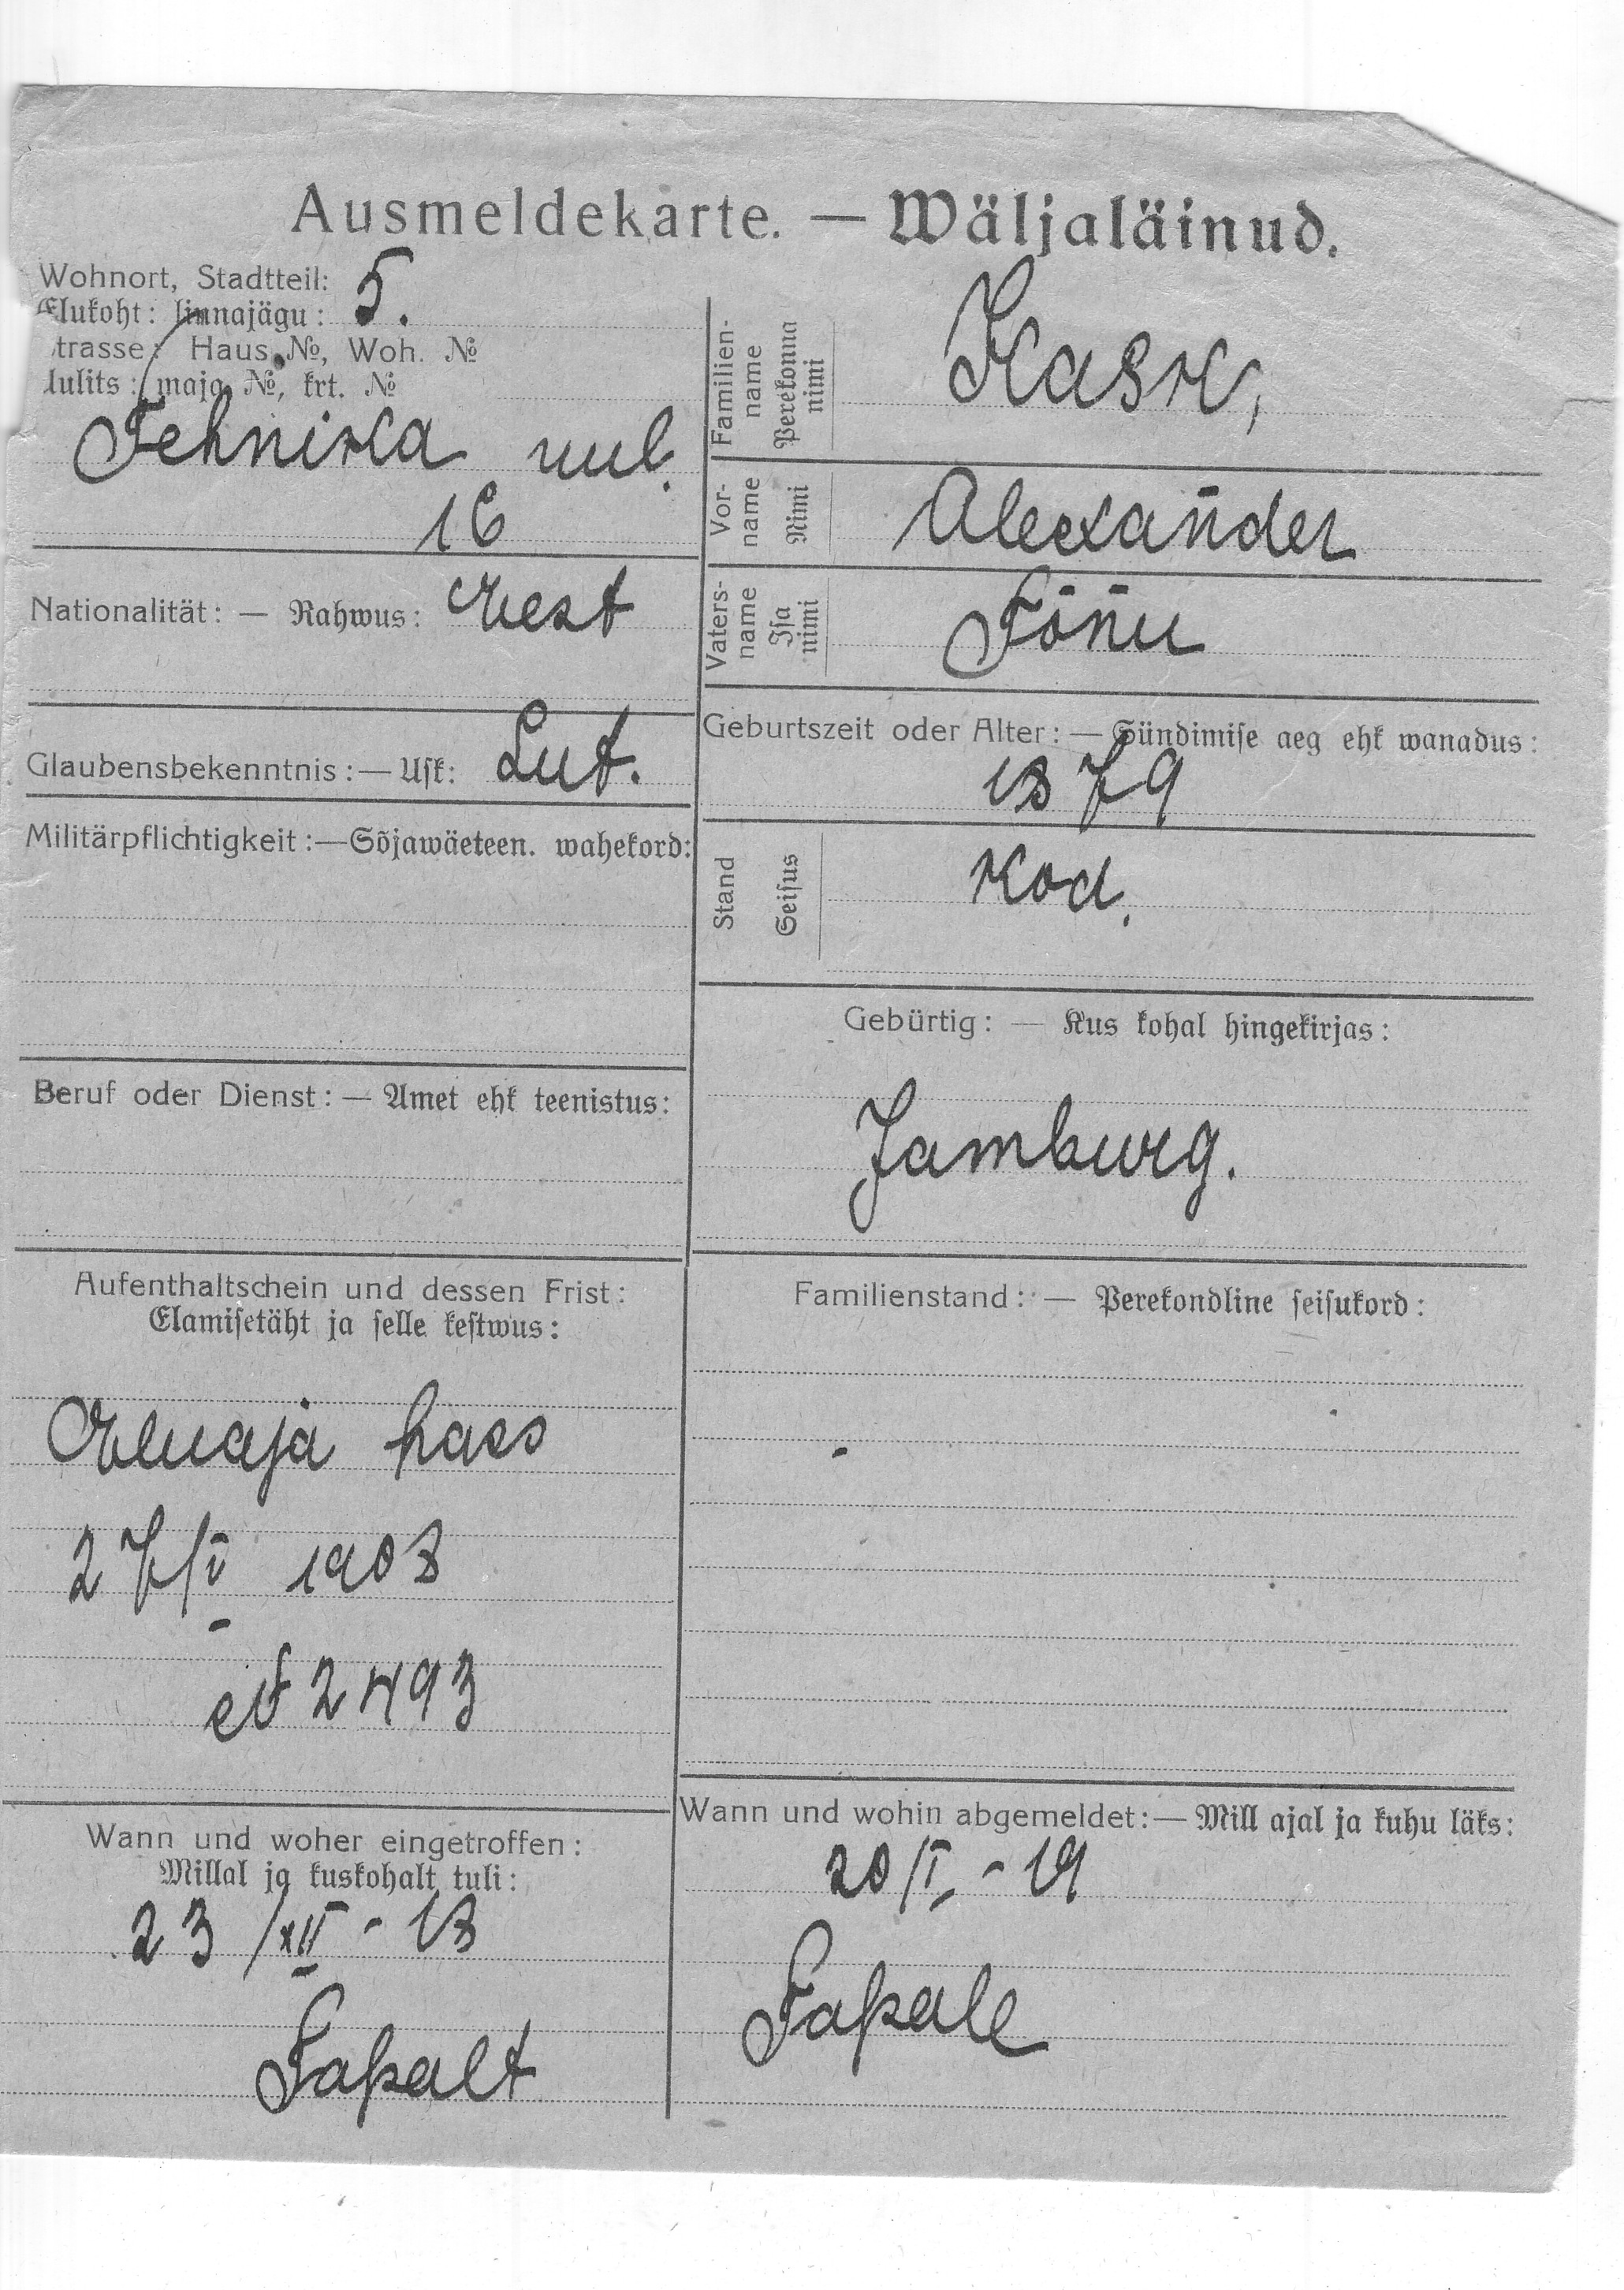 Ausmeldekarte. — Wäljaläinud.
Wohnort, Stadtteil:
Elukoht: linnajägu: 5.
trasse: Haus №, Woh. №
lulits: maja №, krt. №
Tehnika uul.
16
Nationalität: — Rahwus: Eest
Glaubensbekenntnis: — Usk: Lut.
Militärpflichtigkeit: — Sõjawäeteen. wahekord:
Beruf oder Dienst: — Amet ehk teenistus:
Aufenthaltschein und dessen Frist:
Elamisetäht ja selle kestwus:
Eluaja hass
27/V 1908
№ 2493
Wann und woher eingetroffen:
Millal ja kuskohalt tuli:
23/XII - 18
Tapalt
Familien-
name
Perekonna
nimi
Kask,
Vor-
name
Nimi
Alexander
Vaters-
name
Isa
nimi
Tõnu
Geburtszeit oder Alter: — Sündimise aeg ehk wanadus:
1879
Stand
Seisus
Kod.
Gebürtig: — Kus kohal hingekirjas:
Jamburg.
Familienstand: — Perekondline seisukord:
-
Wann und wohin abgemeldet: — Mill ajal ja kuhu läks:
20/I - 19
Tapale